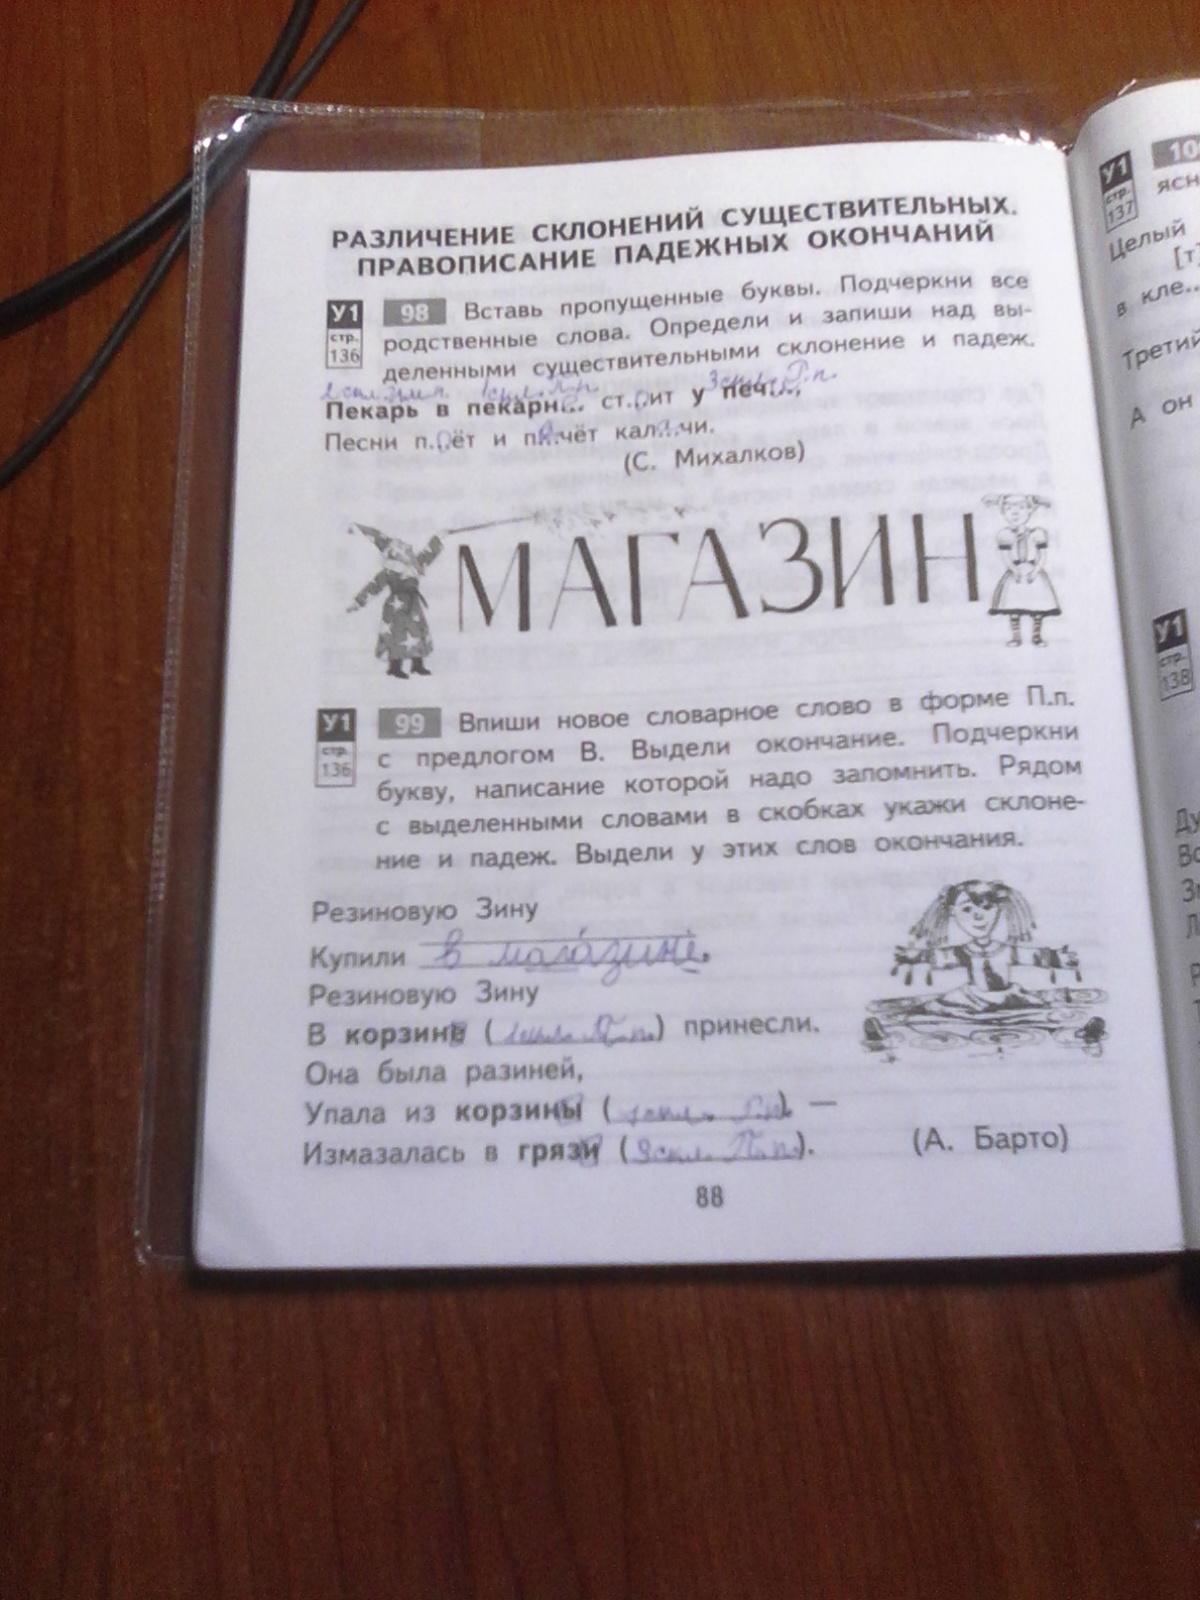 РАЗЛИЧЕНИЕ СКЛОНЕНИЙ СУЩЕСТВИТЕЛЬНЫХ.
ПРАВОПИСАНИЕ ПАДЕЖНЫХ ОКОНЧАНИЙ
У1 стр. 136
98 Вставь пропущенные буквы. Подчеркни все
родственные слова. Определи и запиши над вы-
деленными существительными склонение и падеж.
2скл. И.п. 1скл. П.п. 3скл. Р.п.
Пекарь в пекарн... ст.о.ит у печ.и.,
Песни п.о.ёт и п.е.чёт кал.а.чи.
(С. Михалков)
МАГАЗИН
У1 стр. 136
99 Впиши новое словарное слово в форме П.п.
с предлогом В. Выдели окончание. Подчеркни
букву, написание которой надо запомнить. Рядом
с выделенными словами в скобках укажи склоне-
ние и падеж. Выдели у этих слов окончания.
Резиновую Зину
Купили в магазине.
Резиновую Зину
В корзине (1скл. П.п.) принесли.
Она была разиней,
Упала из корзины (1скл. Р.п.) —
Измазалась в грязи (3скл. П.п.).
(А. Барто)
88
У1 стр. 137
ясн
Целый
[т]
в кле..
Третий
А он
У1 стр. 138